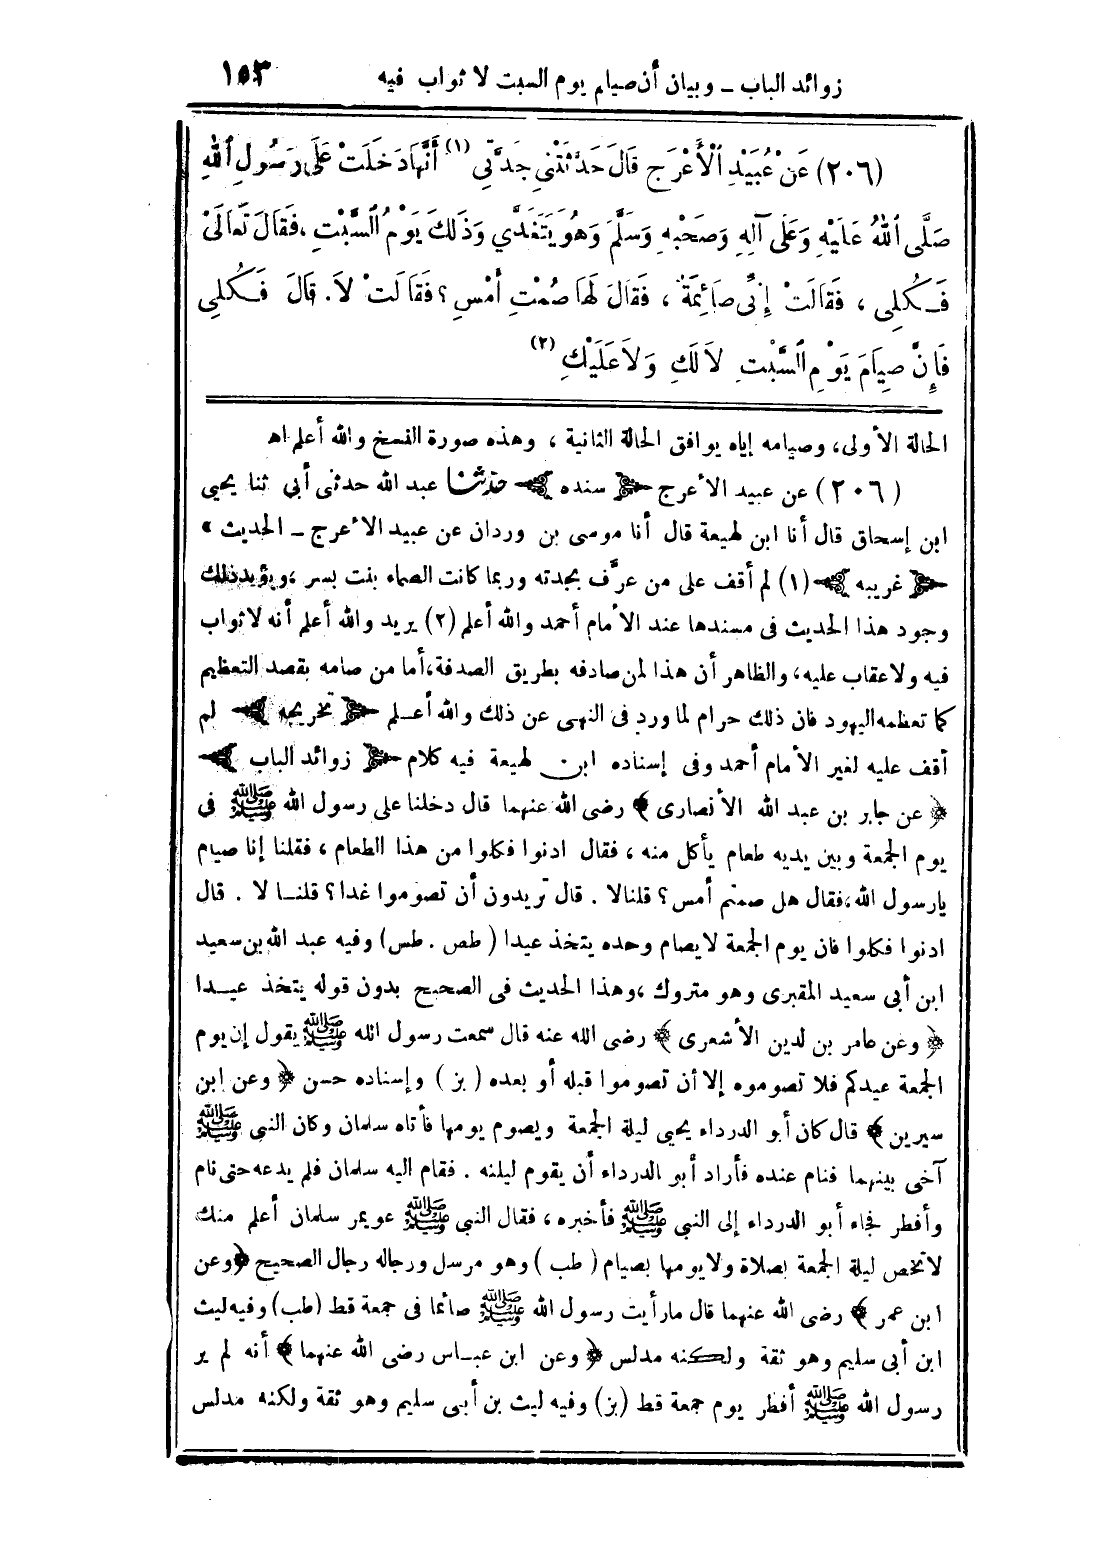 زوائد الباب – وبيان أن صيام يوم السبت لا ثواب فيه ١٥٣
(٢٠٦) عَنْ عُبَيْدِ الْأَعْرَجِ قَالَ حَدَّثَتْنِي جَدَّتِي (١) أَنَّهَا دَخَلَتْ عَلَى رَسُولِ اللهِ
صَلَّى اللهُ عَلَيْهِ وَعَلَى آلِهِ وَصَحْبِهِ وَسَلَّمَ وَهُوَ يَتَغَدَّي وَذَلِكَ يَوْمُ السَّبْتِ ، فَقَالَ تَعَالَيْ
فَكُلِى ، فَقَالَتْ إِنِّى صَائِمَةٌ ، فَقَالَ لَهَا صُمْتِ أَمْسِ ؟ فَقَالَتْ لَا . قَالَ فَكُلِى
فَإِنَّ صِيَامَ يَوْمِ السَّبْتِ لَا لَكِ وَلَا عَلَيْكِ (٢)
الحالة الأولى، وصيامه إياه يوافق الحالة الثانية ، وهذه صورة الفسخ والله أعلم اهـ
(٢٠٦) عن عبيد الأعرج ﴿ سنده ﴾ حدثنا عبد الله حدثنى أبى ثنا يحيى
ابن إسحاق قال أنا ابن لهيعة قال أنا موسى بن وردان عن عبيد الأعرج – الحديث »
﴿ غريبه ﴾ (١) لم أقف على من عرَّف بجدته وربما كانت الصماء بنت بسر ، ويؤيد ذلك
وجود هذا الحديث فى مسندها عند الأمام أحمد والله أعلم (٢) يريد والله أعلم أنه لا ثواب
فيه ولا عقاب عليه، والظاهر أن هذا لمن صادفه بطريق الصدفة، أما من صامه بقصد التعظيم
كما تعظمه اليهود فان ذلك حرام لما ورد فى النهى عن ذلك والله أعلم ﴿ تخريجه ﴾ لم
أقف عليه لغير الأمام أحمد وفى إسناده ابن لهيعة فيه كلام ﴿ زوائد الباب ﴾
﴿ عن جابر بن عبد الله الأنصارى ﴾ رضى الله عنهما قال دخلنا على رسول الله ﷺ فى
يوم الجمعة وبين يديه طعام يأكل منه ، فقال ادنوا فكلوا من هذا الطعام ، فقلنا إنا صيام
يارسول الله، فقال هل صمتم أمس ؟ قلنا لا . قال تريدون أن تصوموا غدا ؟ قلنا لا . قال
ادنوا فكلوا فان يوم الجمعة لا يصام وحده يتخذ عيدا ( طص . طس) وفيه عبد الله بن سعيد
ابن أبى سعيد المقبرى وهو متروك ، وهذا الحديث فى الصحيح بدون قوله يتخذ عيدا
﴿ وعن عامر بن لدين الأشعرى ﴾ رضى الله عنه قال سمعت رسول الله ﷺ يقول إن يوم
الجمعة عيدكم فلا تصوموه إلا أن تصوموا قبله أو بعده ( بز ) وإسناده حسن ﴿ وعن ابن
سيرين ﴾ قال كان أبو الدرداء يحيى ليلة الجمعة ويصوم يومها فأتاه سلمان وكان النبى ﷺ
آخى بينهما فنام عنده فأراد أبو الدرداء أن يقوم ليلته . فقام اليه سلمان فلم يدعه حتى نام
وأفطر فجاء أبو الدرداء إلى النبى ﷺ فأخبره ، فقال النبى ﷺ عويمر سلمان أعلم منك
لا تخص ليلة الجمعة بصلاة ولا يومها بصيام ( طب ) وهو مرسل ورجاله رجال الصحيح ﴿ وعن
ابن عمر ﴾ رضى الله عنهما قال ما رأيت رسول الله ﷺ صائما فى جمعة قط (طب) وفيه ليث
ابن أبى سليم وهو ثقة ولكنه مدلس ﴿ وعن ابن عباس رضى الله عنهما ﴾ أنه لم ير
رسول الله ﷺ أفطر يوم جمعة قط (بز) وفيه ليث بن أبى سليم وهو ثقة ولكنه مدلس